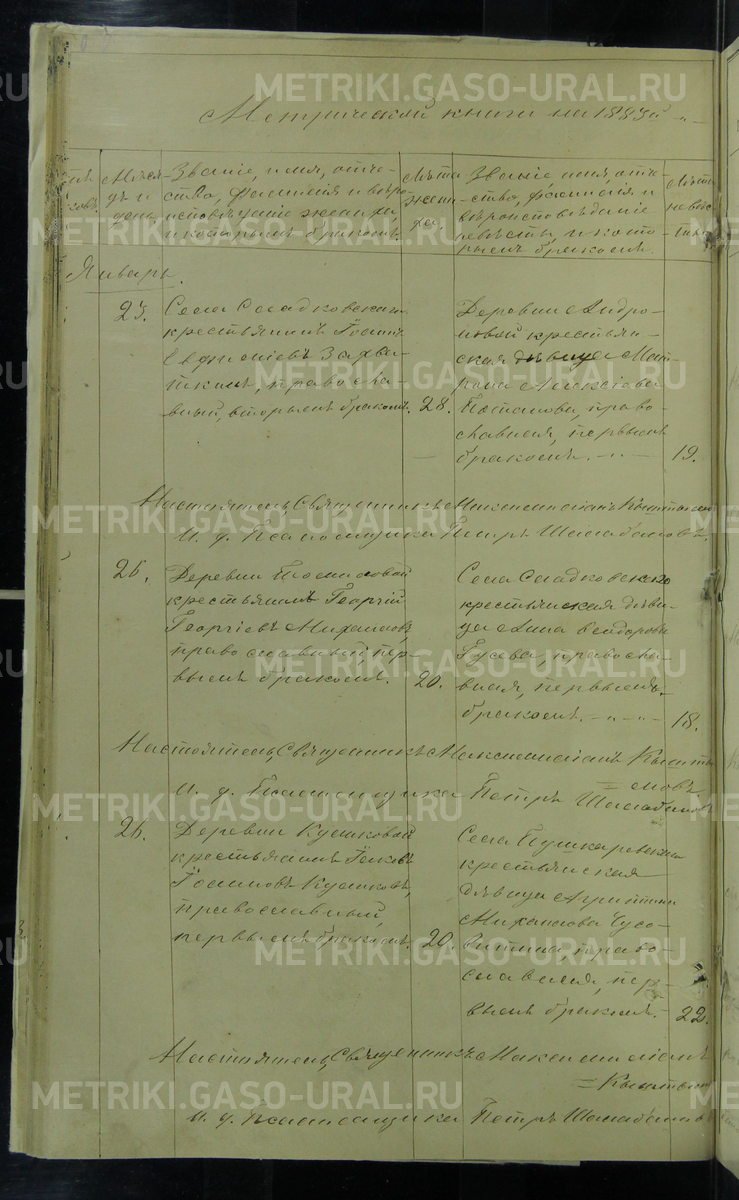 METRIKI.GASO-URAL.RU
Метрической книги на 1883й
Меся-
цъ и
день.
Званіе, имя, отче-
ство, фамилія и веро-
исповѣданіе жениха,
и которымъ бракомъ.
Лѣта
жени-
ха.
Званіе имя, отче-
ство, фамилія, и
вѣроисповѣданіе
невѣсты, и кото-
рымъ бракомъ.
Лѣта
невѣс-
ты.
Январь.
23.
Села Сладковскаго
крестьянинъ Іоаннъ
Евфиміевъ Захва-
ткинъ, православ-
ный, вторымъ бракомъ.
28.
Деревни Андро-
новой крестьян-
ская дѣвица Мат-
рона Алексіева
Потапова, право-
славная, первымъ
бракомъ.
19.
Настоятель, Священникъ Максимиліанъ
И. д. Псаломщика Петръ
25.
Деревни Томиловой
крестьянинъ Георгій
Георгіевъ Михаиловъ,
православный, пер-
вымъ бракомъ.
20.
Села Сладковскаго
крестьянская дѣви-
ца Анна Ѳеодорова
Гусева, правосла-
вная, первымъ
бракомъ.
18.
Настоятель, Священникъ Максимиліанъ
И. д. Псаломщика Петръ
26.
Деревни Кушковой
крестьянинъ Іаковъ
Іоанновъ Кушковъ,
православный,
первымъ бракомъ.
20.
Села Пушкаревскаго
крестьянская
дѣвица Агриппина
Михаилова Чусо-
витина, право-
славная, пер-
вымъ бракомъ.
22.
Настоятель, Священникъ Максимиліанъ
И. д. Псаломщика Петръ